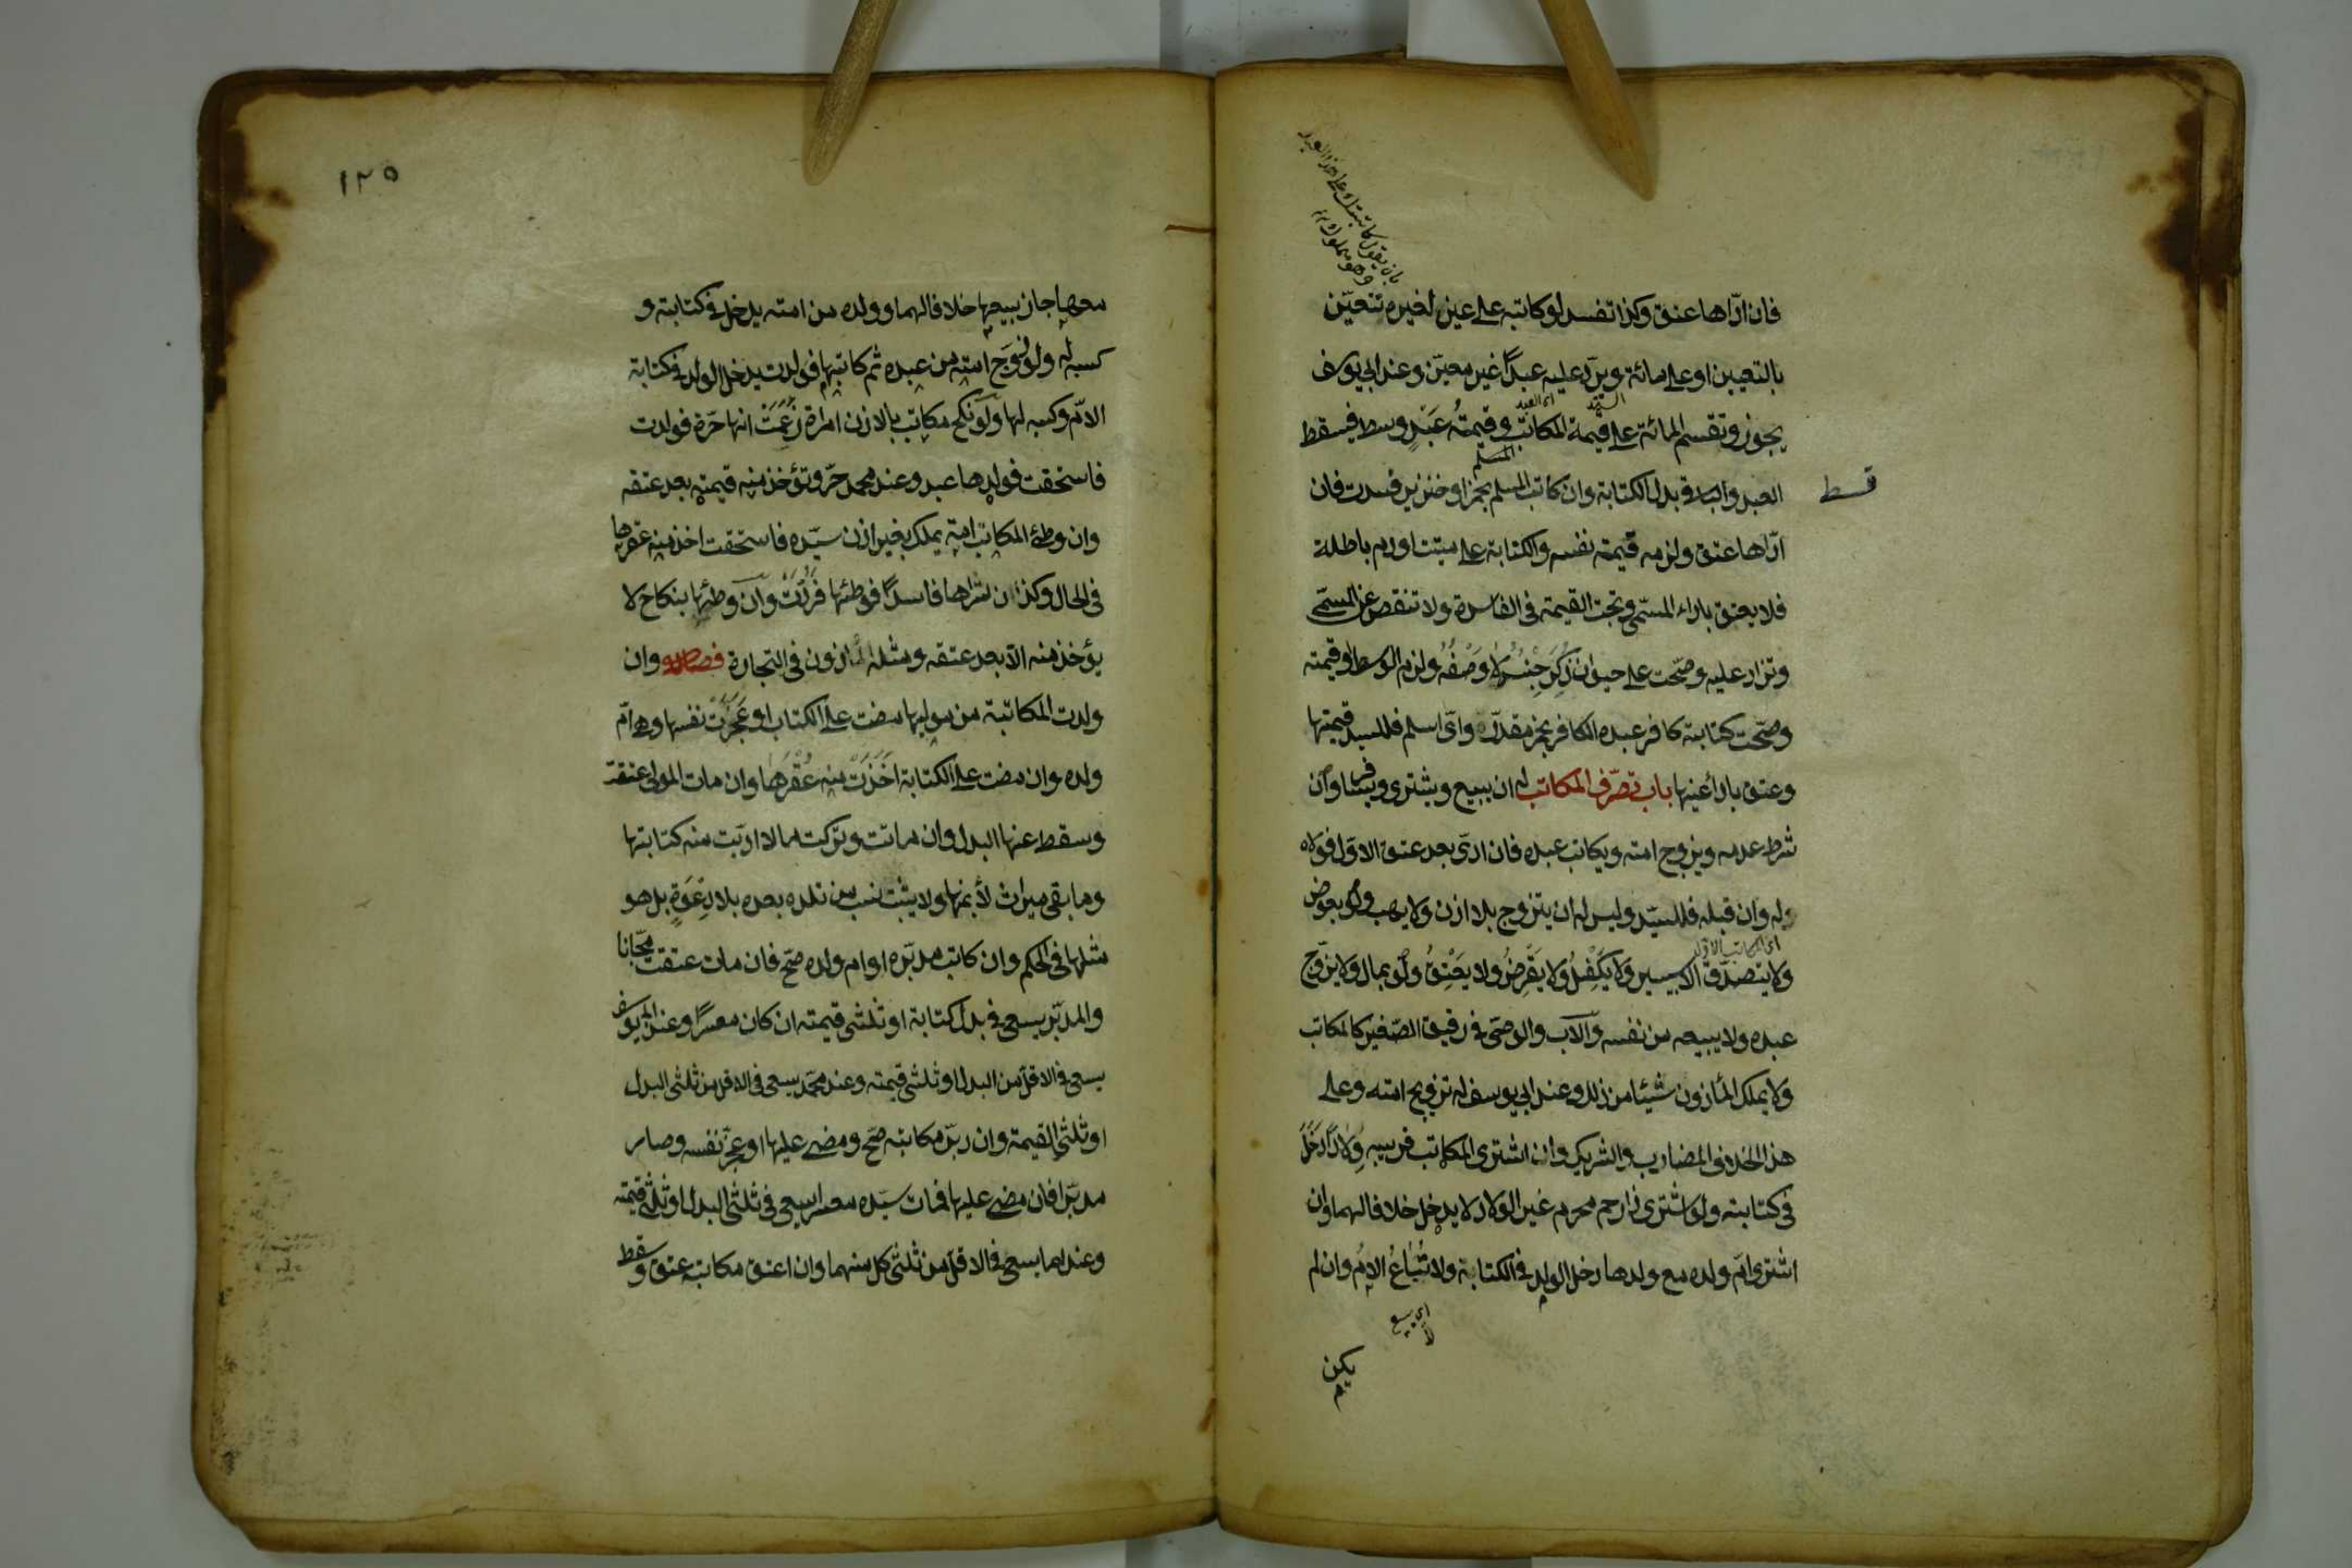 بان يقول كاتبتك على هذا العبد
وهو مملوك
فان ادّاها عتق وكذا تفسد لو كاتبه على عين لغيره تتعيّن
بالتعيين او على مائة ويردّ عليه عبدًا غير معيّن وعند ابي يوسف
السيّد
اى العبد
يجوز وتقسم المائة على قيمة المكاتب وقيمةُ عَبْدٍ وسط فيسقط
قسط
المسلم
العبد والباقى بدل الكتابة وان كاتب المسلم بخمر او خنزير فسدت فان
ادّاها عتق ولزمه قيمة نفسه والكتابة على ميتة او دم باطلة
فلا يعتق باداء المسمّى وتجب القيمة فى الفاسدة ولا تنقص عن المسمّى
وتزاد عليه وصحّت على حيوان ذُكِرَ جِنْسُهُ لا وَصْفُهُ ولزم الوسط او قيمته
وصحّت كتابة كافر عبده الكافر بخمر مقدّرة واىّ اسلم فللسيد قيمتها
وعتق باداء عينها باب تصرّف المكاتب له ان يبيع ويشترى ويسافر وان
شرط عدمه ويزوج امته ويكاتب عبده فان ادّى بعد عتق الاوّل فولاه
له وان قبله فللسيّد وليس له ان يتزوج بلا اذن ولا يهب ولو بعوض
اى المكاتب الاوّل
ولا يتصدّق الا بيسير ولا يَكْفِلُ ولا يقرِضُ ولا يعْتِقُ ولو بمال ولا يزوّج
عبده ولا يبيعه من نفسه والاب والوصىّ فى رقيق الصّغير كالمكاتب
ولا يملك المأذون شيئا من ذلك وعند ابي يوسف له تزويج امته وعلى
هذا الخلاف المضارب والشريك وان اشترى المكاتب قريبه وِلادًا دَخَلَ
فى كتابته ولو اشترى ذا رحم محرم غير الولاد لا يدخل خلافا لهما وان
اشترى امّ ولده مع ولدها دخل الولد فى الكتابة ولا تُبَاعُ الامُ وان لم
اى بيع
يكن
١٢٥
معها جاز بيعها خلافا لهما وولده من امته يدخل فى كتابته و
كسبه له ولو زوّج امته من عبده ثم كاتبها فولدت يدخل الولد فى كتابة
الامّ وكسبه لها ولو نكح مكاتب بالاذن امراة زَعَمَتْ انها حرّة فولدت
فاستحقت فولدها عبد وعند محمد حرّ وتؤخذ منه قيمته بعد عتقه
وان وطئ المكاتب امة بملك بغير اذن سيّده فاستحقت اخذ منه عقرها
فى الحال وكذا ان شراها فاسدًا فوطئها فرُدَّتْ وان وطئها بنكاح لا
يؤخذ منه الا بعد عتقه ومثله المأذون فى التجارة فصل وان
ولدت المكاتبة من موليها مضت على الكتاب او عَجَزَتْ نفسها وهى امّ
ولده وان مضت على الكتابة اَخَذَتْ منه عُقْرَهَا وان مات المولى عتقت
وسقط عنها البدل وان ماتت وتركت مالا ادّيت منه كتابتها
وما بقى ميراث لأبنها ولا يثبت نسب من تلده بعده بلا دِعْوَةٍ بل هو
مثلها فى الحكم وان كاتب مدبّره او ام ولده صحّ فان مات عتقت مجّانا
والمدبّر يسعى فى بدل كتابة او ثلثى قيمته ان كان معسرًا وعند ابي يوسف
يسعى فى الاقل من البدل او ثلثى قيمته وعند محمّد يسعى فى الاقل من ثلثى البدل
او ثلثى القيمة وان دبّر مكاتبه صحّ ومضى عليها او عجّز نفسه وصار
مدبّرا فان مضى عليها فمات سيّده معسرا يسعى فى ثلثى البدل او ثلثى قيمته
وعندهما يسعى فى الاقل من ثلثى كل منهما وان اعتق مكاتبه عتق وسقط